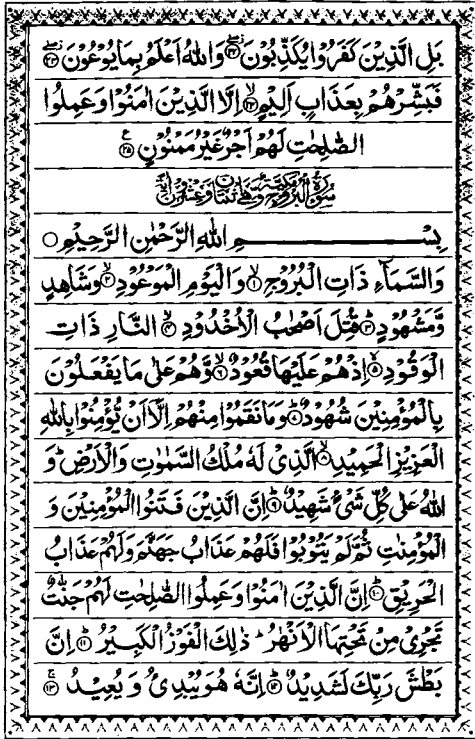 بَلِ الَّذِيۡنَ كَفَرُوۡا يُكَذِّبُوۡنَ ۝۲۲ وَاللّٰهُ اَعۡلَمُ بِمَا يُوۡعُوۡنَ ۝۲۳
فَبَشِّرۡهُمۡ بِعَذَابٍ اَلِيۡمٍ ۝۲۴ اِلَّا الَّذِيۡنَ اٰمَنُوۡا وَعَمِلُوا
الصّٰلِحٰتِ لَهُمۡ اَجۡرٌ غَيۡرُ مَمۡنُوۡنٍ ۝۲۵
بِسۡمِ اللّٰهِ الرَّحۡمٰنِ الرَّحِيۡمِ ۝
وَالسَّمَآءِ ذَاتِ الۡبُرُوۡجِ ۝۱ وَالۡيَوۡمِ الۡمَوۡعُوۡدِ ۝۲ وَشَاهِدٍ
وَّمَشۡهُوۡدٍ ۝۳ قُتِلَ اَصۡحٰبُ الۡاُخۡدُوۡدِ ۝۴ النَّارِ ذَاتِ
الۡوَقُوۡدِ ۝۵ اِذۡ هُمۡ عَلَيۡهَا قُعُوۡدٌ ۝۶ وَّهُمۡ عَلٰى مَا يَفۡعَلُوۡنَ
بِالۡمُؤۡمِنِيۡنَ شُهُوۡدٌ ۝۷ وَمَا نَقَمُوۡا مِنۡهُمۡ اِلَّاۤ اَنۡ يُّؤۡمِنُوۡا بِاللّٰهِ
الۡعَزِيۡزِ الۡحَمِيۡدِ ۝۸ الَّذِىۡ لَهٗ مُلۡكُ السَّمٰوٰتِ وَالۡاَرۡضِ ؕ وَ
اللّٰهُ عَلٰى كُلِّ شَىۡءٍ شَهِيۡدٌ ۝۹ اِنَّ الَّذِيۡنَ فَتَنُوا الۡمُؤۡمِنِيۡنَ وَ
الۡمُؤۡمِنٰتِ ثُمَّ لَمۡ يَتُوۡبُوۡا فَلَهُمۡ عَذَابُ جَهَنَّمَ وَلَهُمۡ عَذَابُ
الۡحَرِيۡقِ ۝۱۰ اِنَّ الَّذِيۡنَ اٰمَنُوۡا وَعَمِلُوا الصّٰلِحٰتِ لَهُمۡ جَنّٰتٌ
تَجۡرِىۡ مِنۡ تَحۡتِهَا الۡاَنۡهٰرُ ؕ ذٰلِكَ الۡفَوۡزُ الۡكَبِيۡرُ ۝۱۱ اِنَّ
بَطۡشَ رَبِّكَ لَشَدِيۡدٌ ۝۱۲ اِنَّهٗ هُوَ يُبۡدِئُ وَيُعِيۡدُ ۝۱۳